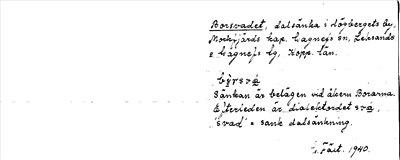 Borsvadet, dalsänka i Högbergets by,
Morkyjärds kap. Gagnefs sn, Leksands
o Gagnefs tg, Kopp. län.
bǫrsvá
Sänkan är belägen vid åkern Borarna.
Efterleden är dialektordet svá,
'svad' = sank dalsänkning.
1940.